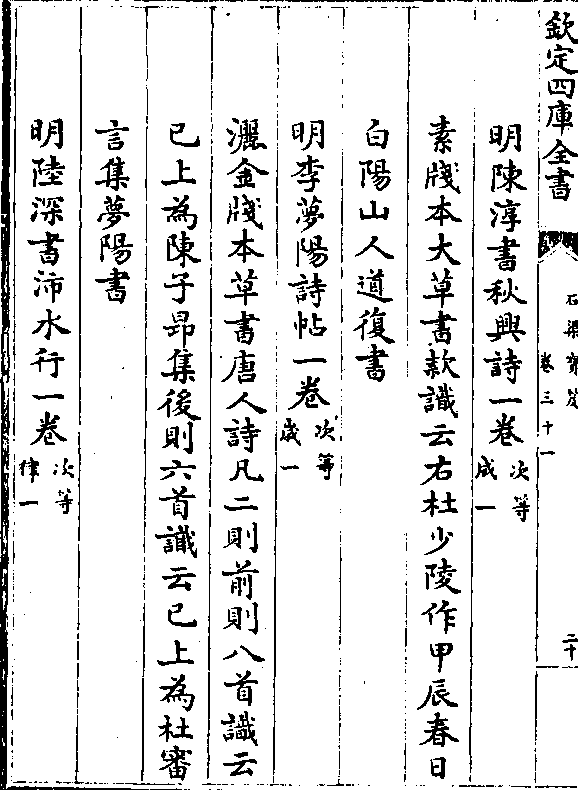 欽定四庫全書
石渠寶笈
卷三十一
二十
明陳淳書秋興詩一卷 次等成一
素牋本大草書款識云右杜少陵作甲辰春日
白陽山人道復書
明李夢陽詩帖一卷 次等歲一
灑金牋本草書唐人詩凡二則前則八首識云
已上為陳子昻集後則六首識云已上為杜審
言集夢陽書
明陸深書沛水行一卷 次等律一